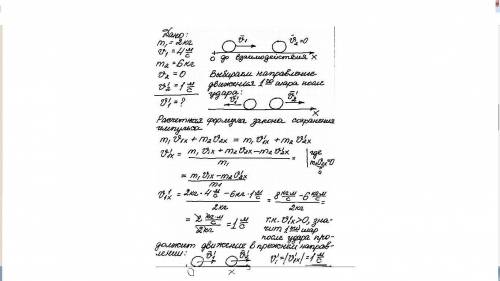 Дано:
m₁ = 2кг
v₁ = 4 м/с
m₂ = 6кг
v₂ = 0
v₂' = 1 м/с
v₁' = ?
v⃗₁ v⃗₂=0
0 до взаимодействия X
Выбираем направление
движения 1го шара после
удара:
v⃗₁' v⃗₂'
X
Расчетная формула закона сохранения
импульса
m₁v₁x + m₂v₂x = m₁v₁'x + m₂v₂'x
v₁'x = (m₁v₁x + m₂v₂x − m₂v₂'x)/m₁ = | где m₂v₂x=0
= (m₁v₁x − m₂v₂'x)/m₁
v₁'x = (2кг·4 м/с − 6кг·1 м/с)/2кг = (8 кг·м/с − 6 кг·м/с)/2кг =
= (2 кг·м/с)/2кг = 1 м/с т.к. v₁'x>0, зна-
чит 1ый шар
после удара про-
должит движение в прежнем направ-
лении: v⃗₁' v⃗₂' v₁' = |v₁'x| = 1 м/с
0 X